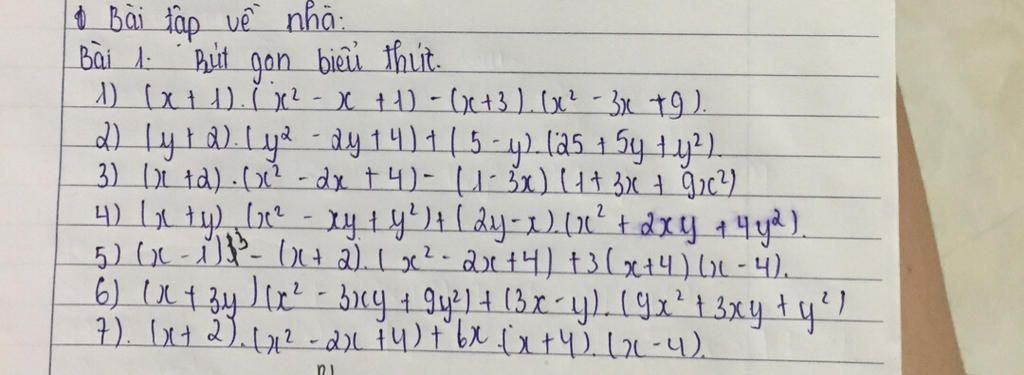 Bài tập về nhà:
Bài 1: Rút gọn biểu thức.
1) (x + 1).(x² - x + 1) - (x+3).(x² - 3x + 9).
2) (y + 2).(y² - 2y + 4) + (5 - y).(25 + 5y + y²).
3) (x + 2).(x² - 2x + 4) - (1 - 3x)(1 + 3x + 9x²)
4) (x + y).(x² - xy + y²) + (2y - x).(x² + 2xy + 4y²).
5) (x - 1)³ - (x + 2).(x² - 2x + 4) + 3(x + 4)(x - 4).
6) (x + 3y)(x² - 3xy + 9y²) + (3x - y).(9x² + 3xy + y²)
7). (x + 2).(x² - 2x + 4) + 6x.(x + 4).(x - 4).